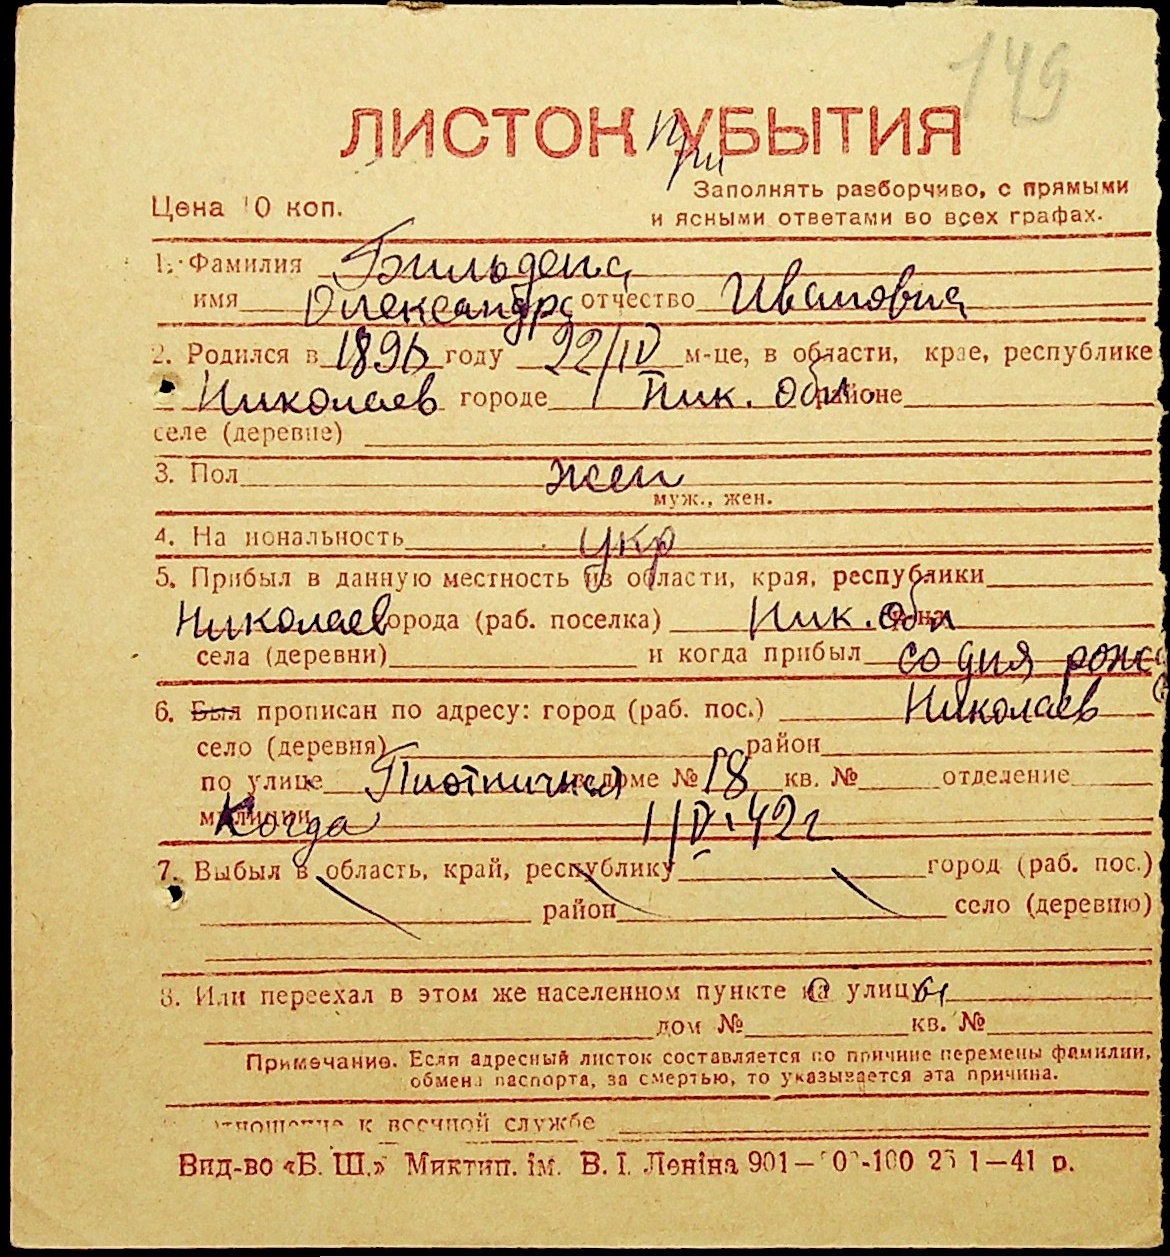 149
ЛИСТОК при УБЫТИЯ
Цена 10 коп.
Заполнять разборчиво, с прямыми
и ясными ответами во всех графах.
1. Фамилия
имя Олександра отчество Ивановна
2. Родился в 1896 году 22/IV м-це, в области, крае, республике
Николаев городе Ник. обл. районе
селе (деревне)
3. Пол жен
муж., жен.
4. Национальность укр
5. Прибыл в данную местность из области, края, республики
Николаев города (раб. поселка) Ник. обл
села (деревни) и когда прибыл со дня рож
6. Был прописан по адресу: город (раб. пос.) Николаев
село (деревня) район
по улице Плотничная в доме № 18 кв. № отделение
милиции Когда 1/V.42г
7. Выбыл в область, край, республику город (раб. пос.)
район село (деревню)
8. Или переехал в этом же населенном пункте с улицы
дом № кв. №
Примечание. Если адресный листок составляется по причине перемены фамилии,
обмена паспорта, за смертью, то указывается эта причина.
отношение к военной службе
Вид-во «Б. Ш.» Миктип. ім. В. І. Леніна 901— 1—41 р.